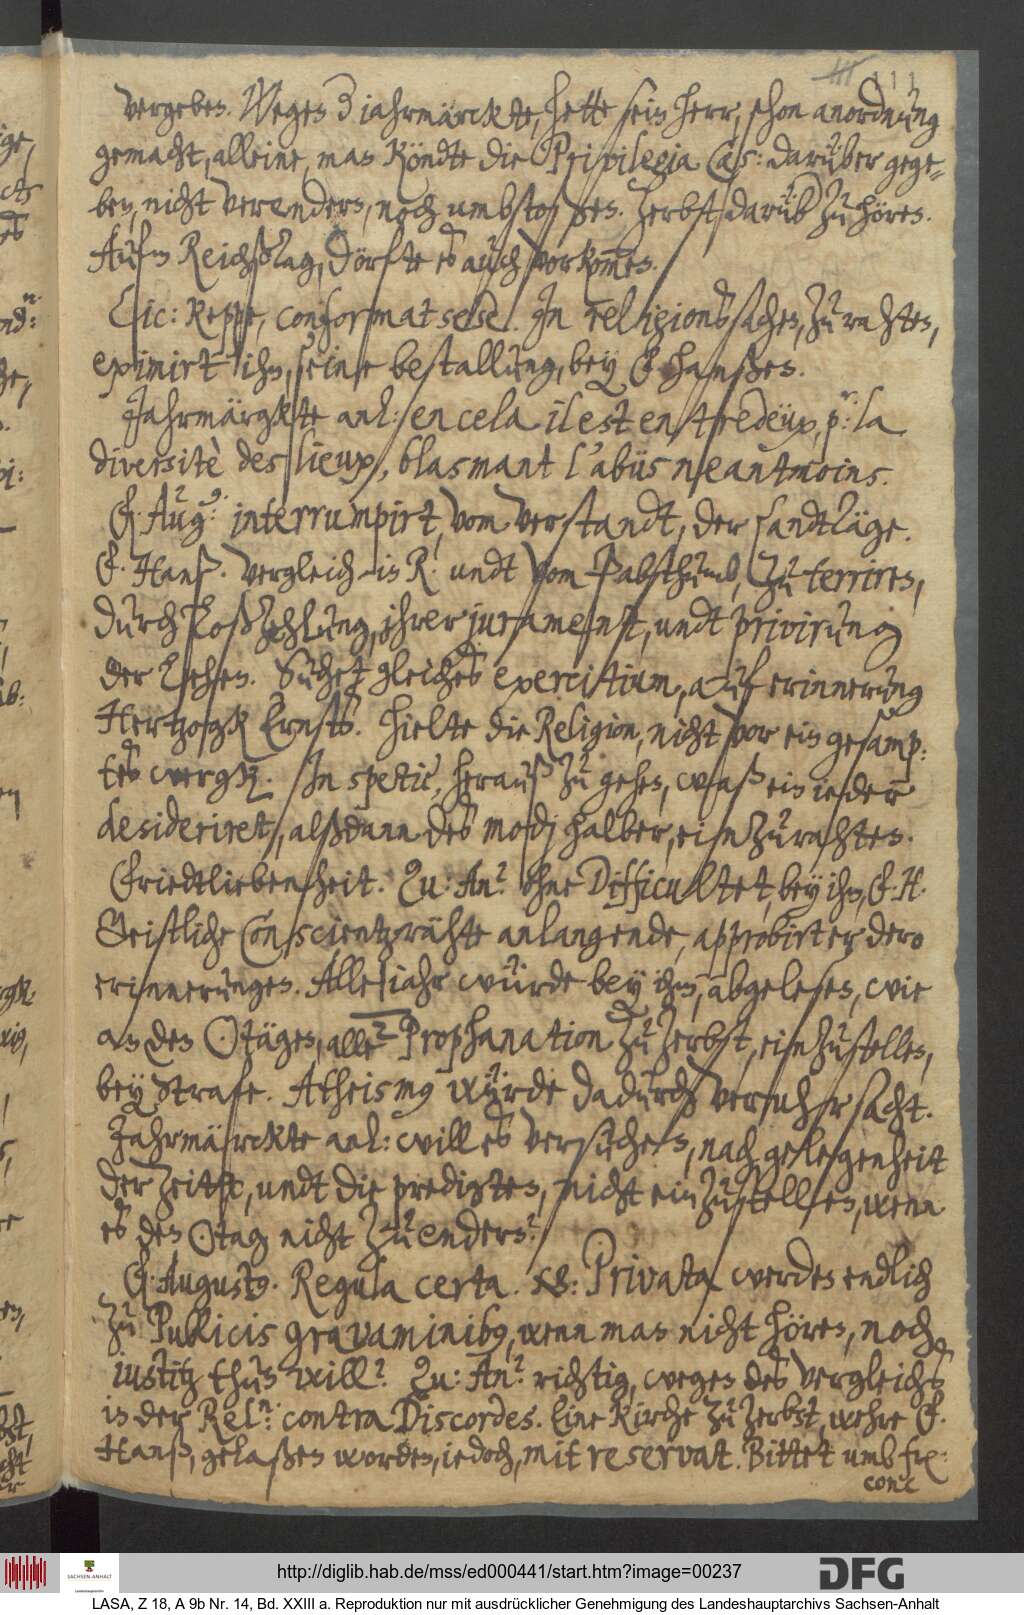 111 111
vergeben. Wegen 3 jahrmärckte, hette sein herr, schon anordnung
gemacht, alleine, man köndte die Privilegia Cæs: darüber gege-
ben, nicht verendern, noch umbstoßen. Zerbst darüb. zu hören.
Aufm Reichßtag, dörfte es auch vorkom̅en.
Lic: Reppe, conformat sese. In religionssachen, zu rahten,
eximirt ihn, seine bestallung, bey F. Hanßen.
Jahrmärgkte anl: en cela il est entre deux, pr: la
diversitè des lieux, blasmant l'abüs neantmoins.
F. Aug9: interrumpirt, vom verstandt, der landtäge.
F. Hanß. Vergleich in R. undt vom Pabsthumb, zu terriren,
durch loßzehlung, ihrer jurament, undt privirung
der Lehen. Suchet gleiches exercitium, auf erinnerung
Hertzogk Ernsts. Hielte die Religion, nicht vor ein gesamp:
tes wergk. In specie, herauß zu gehen, waß ein ieder
desideriret, alßdann des modj halber, einzurahten.
Friedtliebenheit. Zu: An? ohne Difficultet, bey ihm, F. H.
Geistliche Conscientzrähte anlangende, approbirt er dero
erinnerungen. Alle jahr würde bey ihm, abgelesen, wie
an den ʘtägen, alle Prophanation zu Zerbst, einzustellen,
bey Strafe. Atheismg würde dadurch veruhrsacht.
Jahrmärckte anl: will es versuchen, nach gelegenheit
der Zeitt, undt die predigten, nicht einzustellen, wenn
es den ʘtag nicht zu endern?
F. Augusto. Regula certa. NB: Privata werden endlich
Zu Publicis gravaminibg, wenn man nicht hören, noch
iustitz thun will? Zu: An? richtig, wegen des vergleichs
in der Reln: contra Discordes. Eine Kirche zu Zerbst, wehre F.
Hanß, gelaßen worden, iedoch, mit reservat. Bittet umb fr:
conc
http://diglib.hab.de/mss/ed000441/start.htm?image=00237
DFG
SACHSEN-ANHALT
LASA, Z 18, A 9b Nr. 14, Bd. XXIII a. Reproduktion nur mit ausdrücklicher Genehmigung des Landeshauptarchivs Sachsen-Anhalt